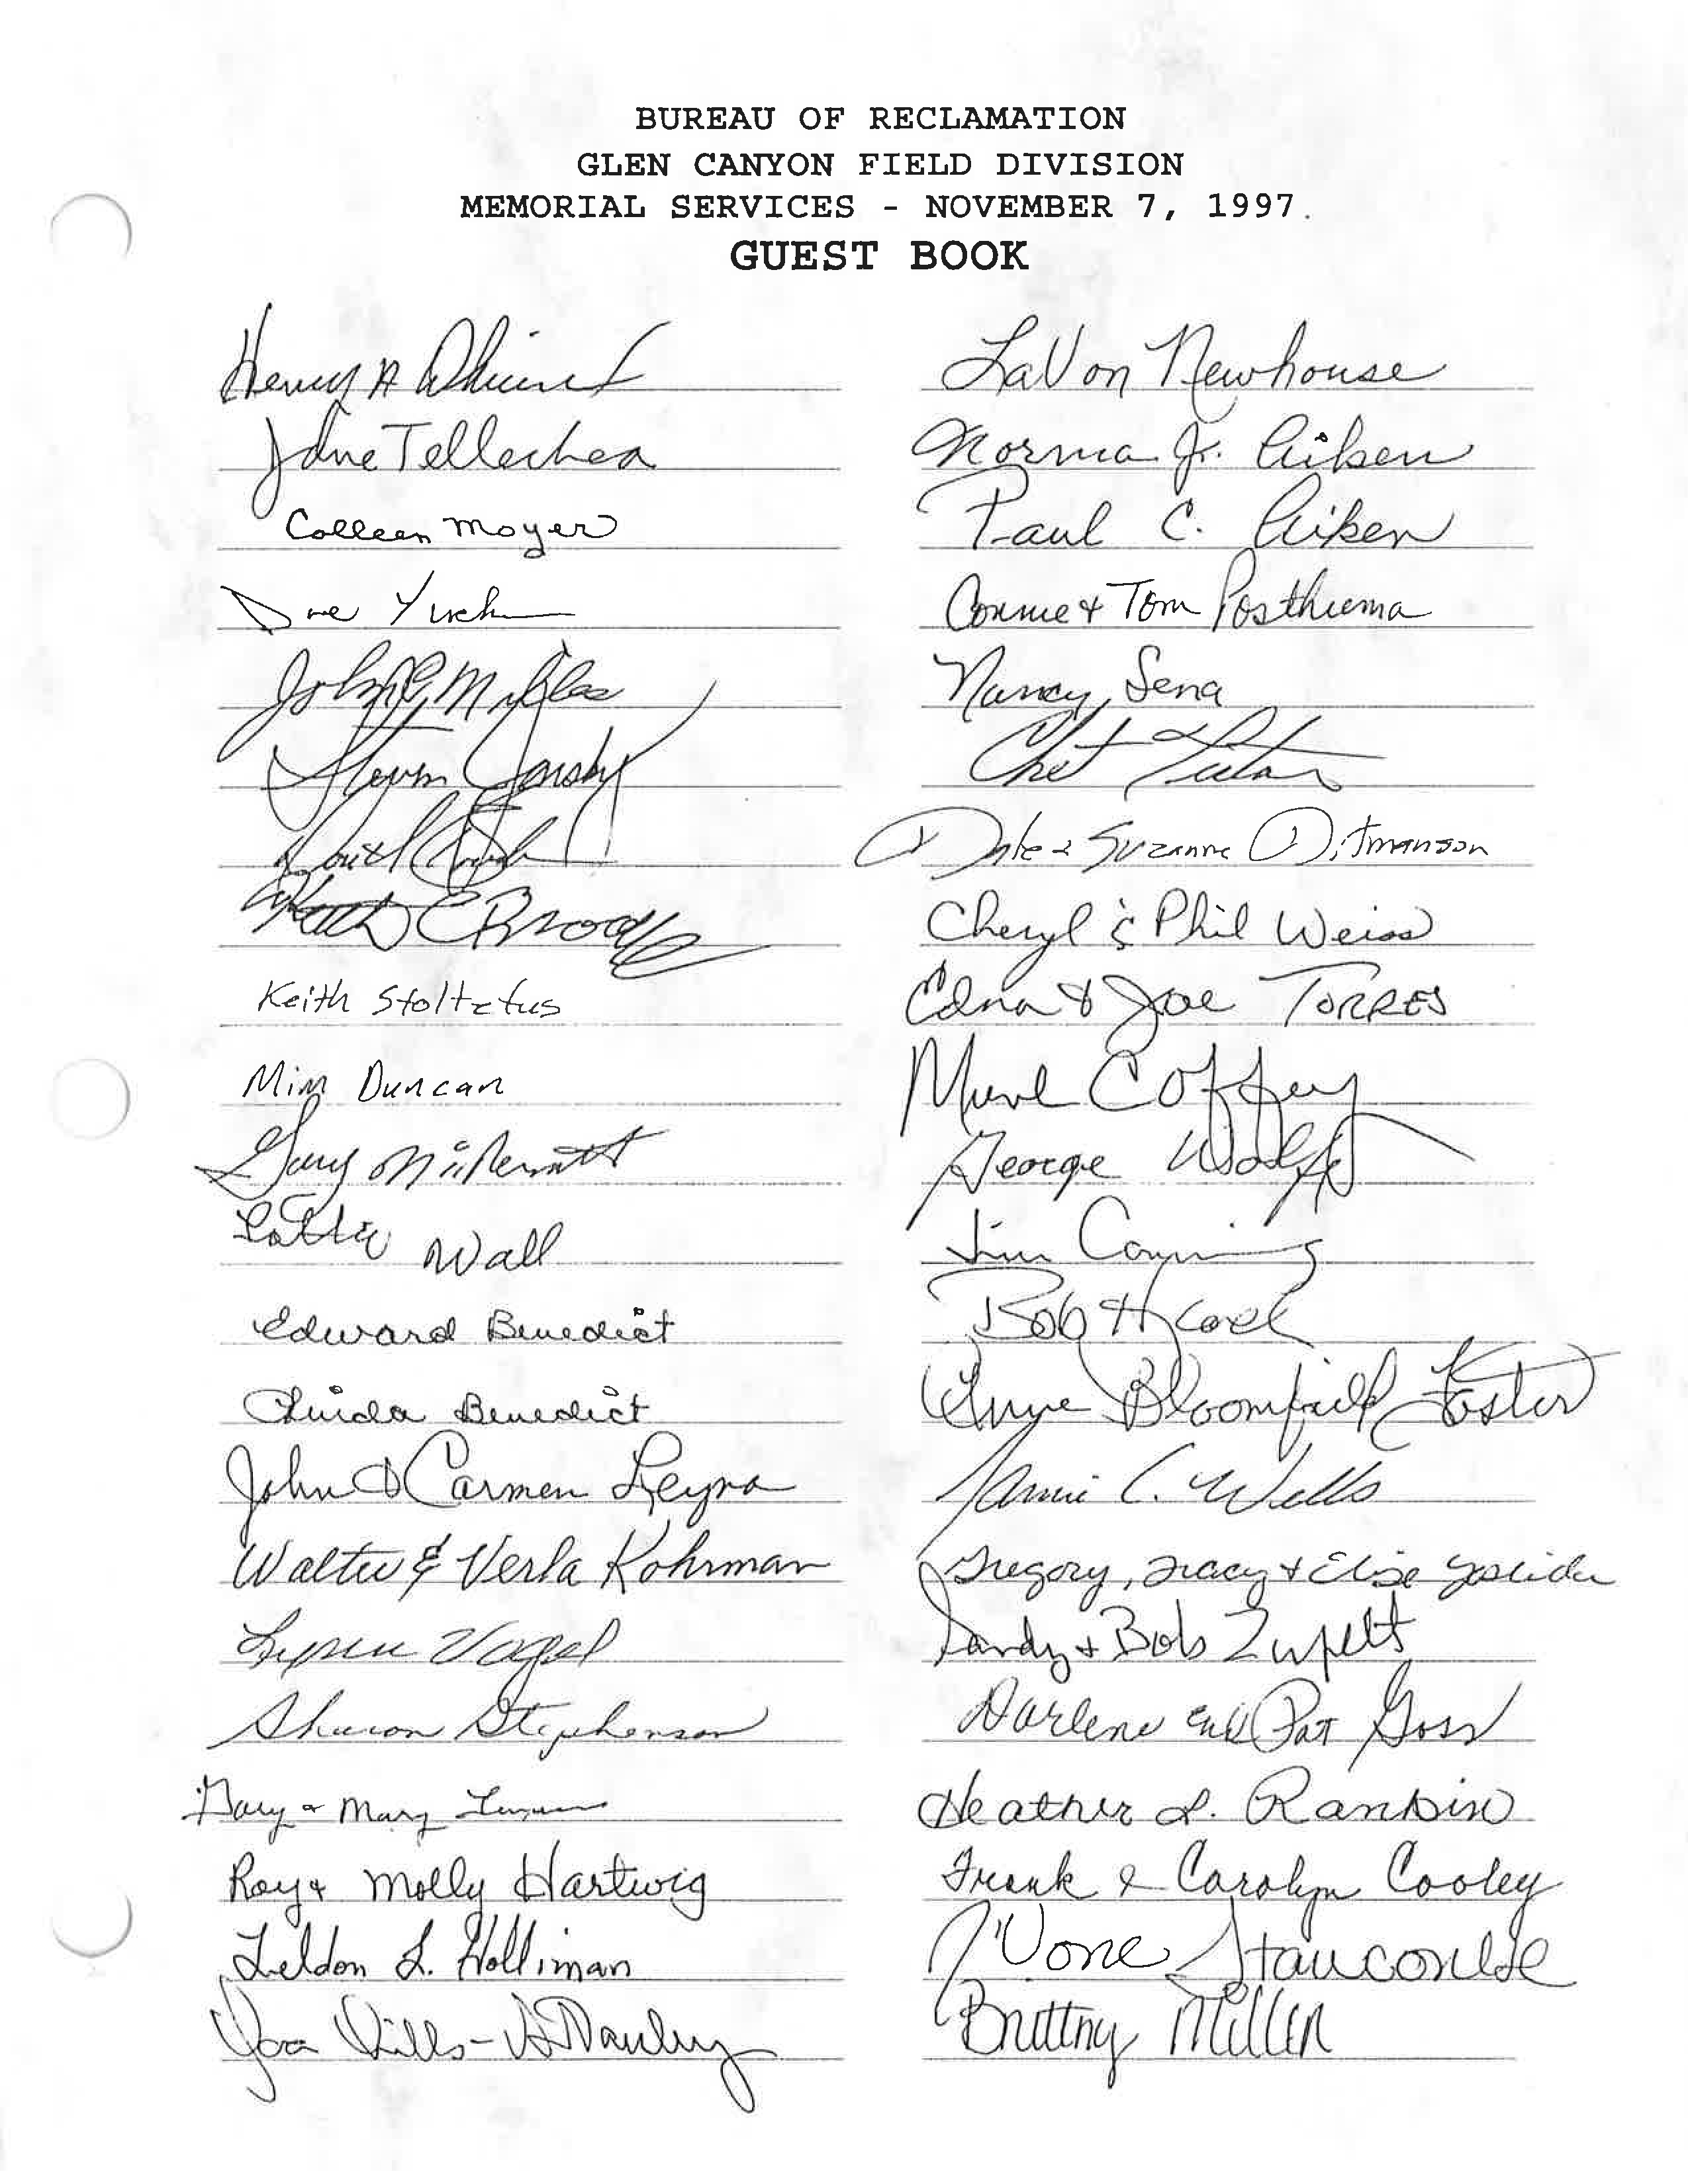 BUREAU OF RECLAMATION
GLEN CANYON FIELD DIVISION
MEMORIAL SERVICES - NOVEMBER 7, 1997.
GUEST BOOK
Henry A
Jane Tellechea
Colleen Moyer
Dave
John
Steven
David
Keith C Brooks
Keith Stoltzfus
Mim Duncan
Gary McDermott
Wall
Edward Benedict
Benedict
John & Carmen Leyva
Walter & Verla Kohrman
Vogel
Sharon Stephenson
Gary & Mary
Roy & Molly Hartwig
Leldon L. Holliman
LaVon Newhouse
Norma Jr. Aiken
Paul C. Aiken
Connie & Tom Posthuma
Nancy Sena
Chet
Dale & Suzanne Ditmanson
Cheryl & Phil Weiss
Edna & Joe TORRES
Coffey
George Wolff
Jim
Bob
Anne Bloomfield Foster
C. Wells
Gregory, Tracy & Elise Yoshida
Sandy & Bob Zupelt
Darlene and Pat Goss
Heather L. Rankin
Frank & Carolyn Cooley
Brittny Miller